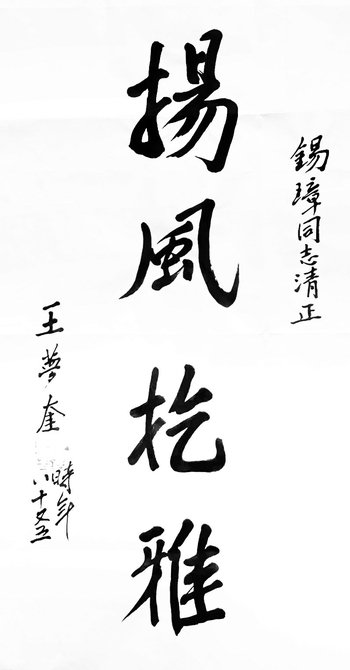 錫璋同志清正
揚風扢雅
王夢奎
時年
八十又五